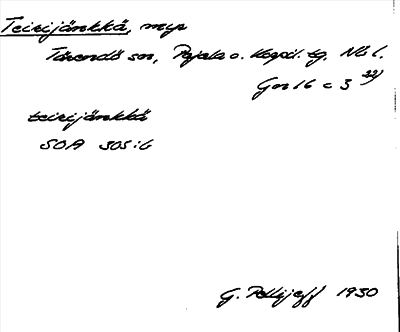 Teirijänkkä, myr
Tärendö sn, Pajala o. Korpil. tg. Nb l.
Gm 16 c 3 22)
teirijänkkä
SOA 305:6
G. Pellijeff 1930